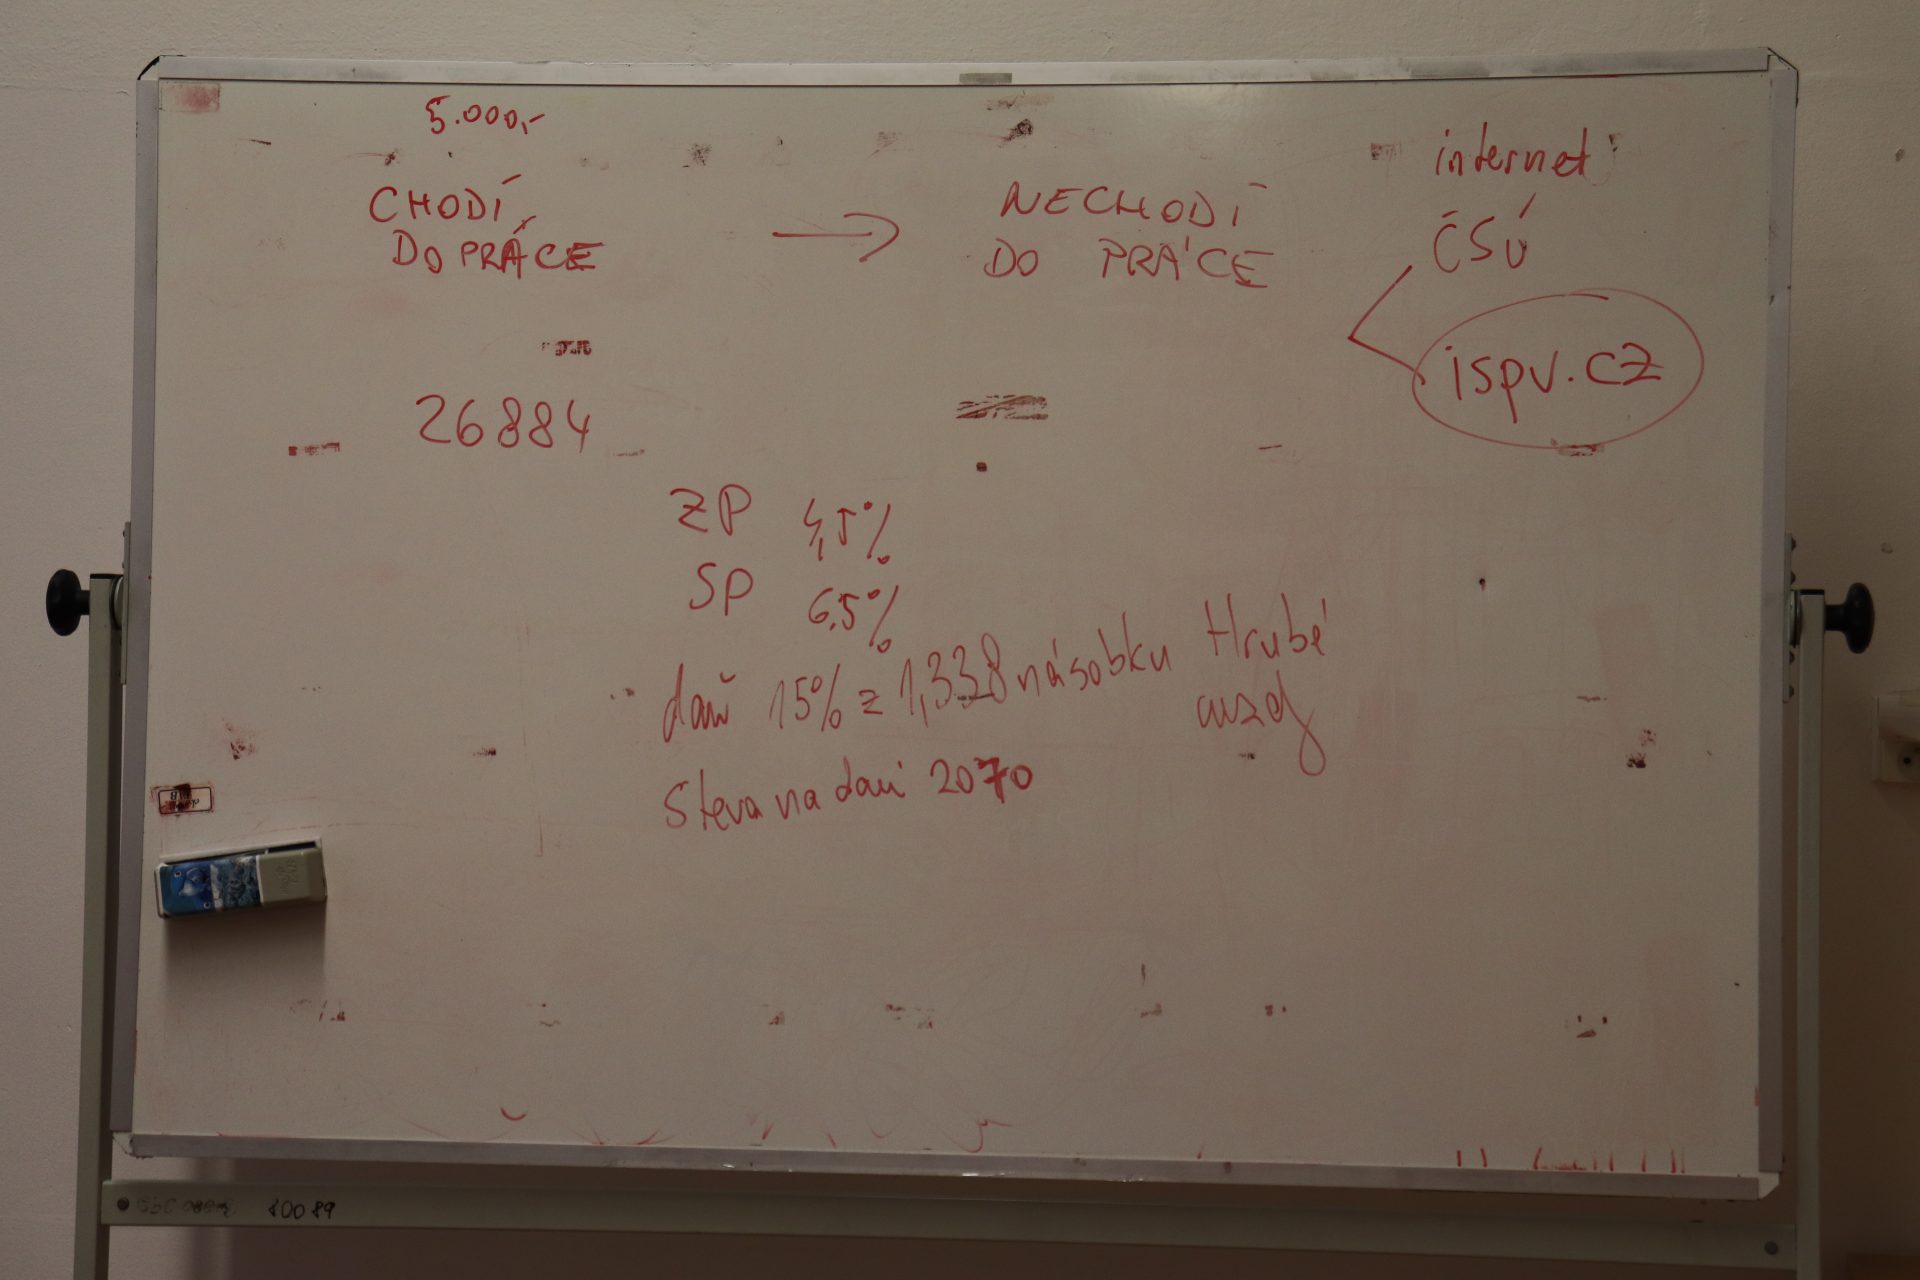 5.000,-
CHODÍ
DO PRÁCE
NECHODÍ
DO PRÁCE
internet
ČSÚ
ispv.cz
26884
ZP 4,5%
SP 6,5%
daň 15% z 1,338 násobku Hrubé
mzdy
Sleva na dani 2070
10089